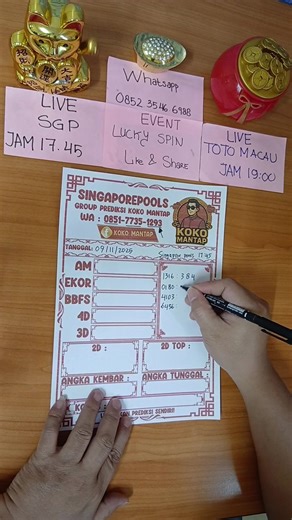 LIVE
SGP
JAM 17.45
Whatsapp
0852 3546 6988
EVENT
LUCKY SPIN
Like & Share
LIVE
TOTO MACAU
JAM 19:00
SINGAPOREPOOLS
GROUP PREDIKSI KOKO MANTAP
WA : 0851-7735-1293
KOKO MANTAP
KOKO
MANTAP
TANGGAL: 09/11/2025
Singapore pools 17.45
AM
EKOR
BBFS
4D
3D
1316 : 384
0180
4103
6456
2D :
2D TOP :
ANGKA KEMBAR :
ANGKA TUNGGAL :
PREDIKSI SENDIRI!